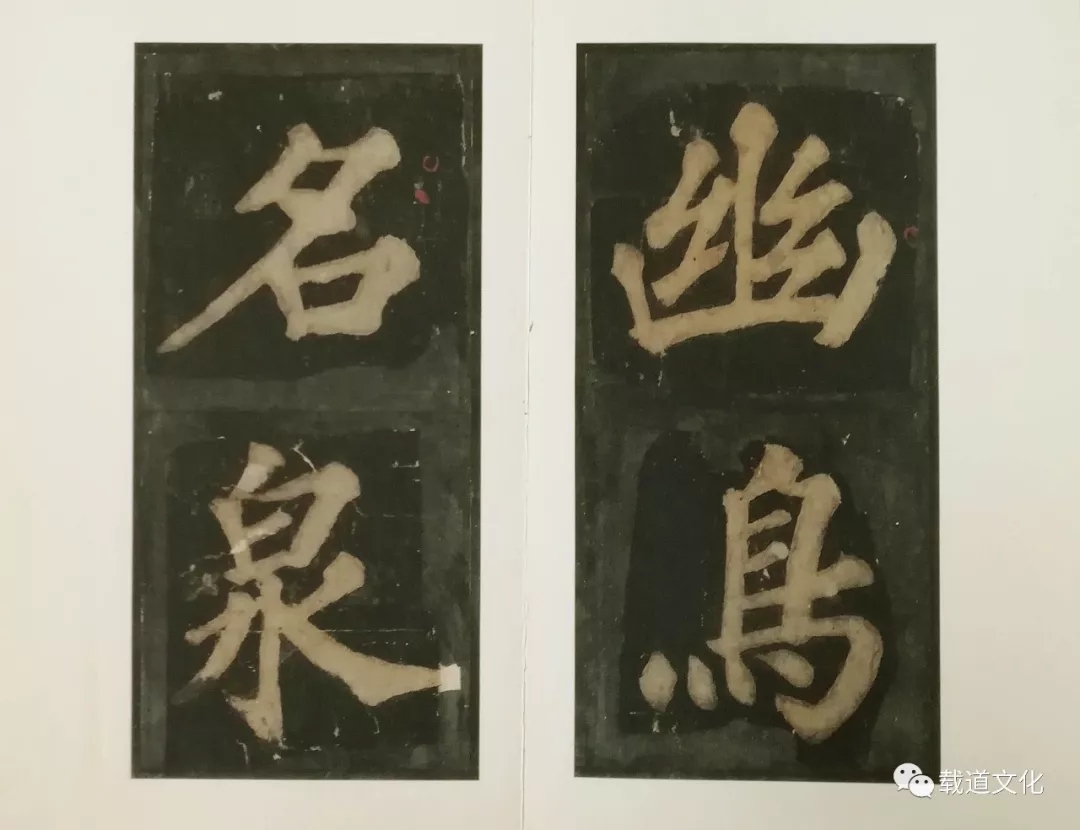 幽鳥
名泉
载道文化